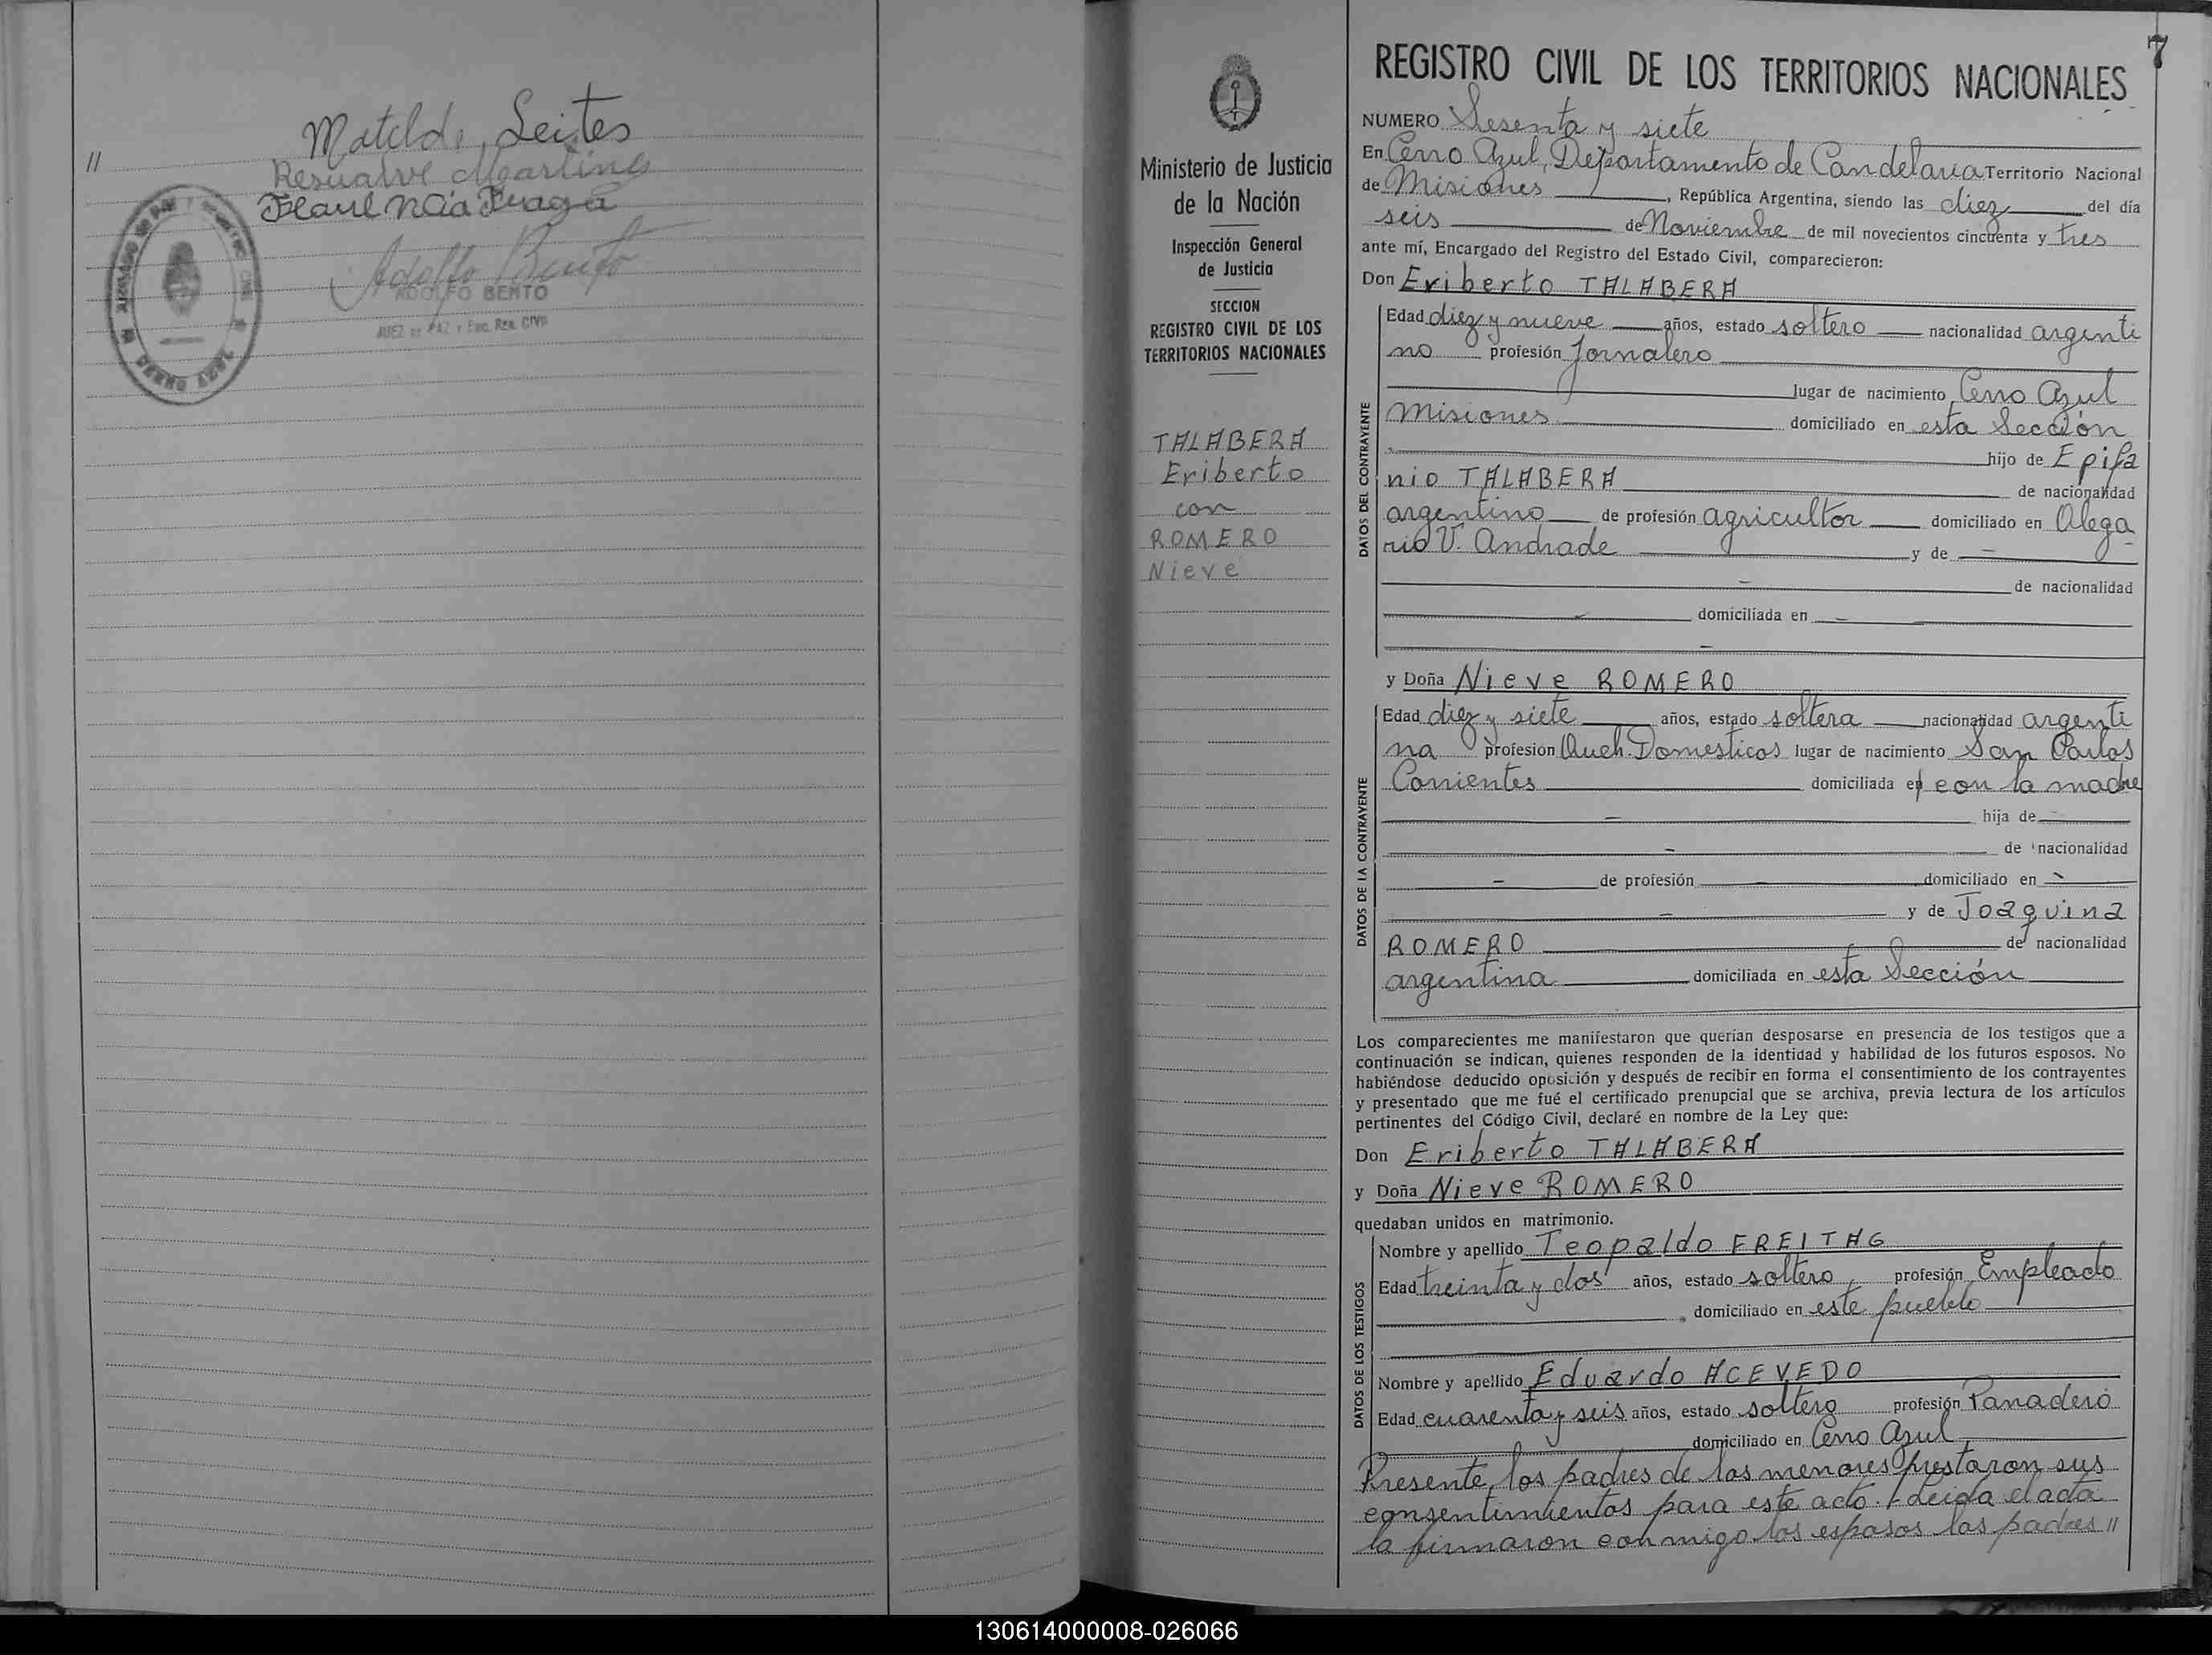 Matilde Leites
//
Adolfo Bento
ADOLFO BENTO
JUEZ DE PAZ y Enc. Reg. Civil
CERRO AZUL
7
Ministerio de Justicia
de la Nación
Inspección General
de Justicia
SECCION
REGISTRO CIVIL DE LOS
TERRITORIOS NACIONALES
TALABERA
Eriberto
con
ROMERO
Nieve
REGISTRO CIVIL DE LOS TERRITORIOS NACIONALES
NUMERO Sesenta y siete
En Cerro Azul, Departamento de Candelaria Territorio Nacional
de Misiones, República Argentina, siendo las diez del día
seis de Noviembre de mil novecientos cincuenta y tres
ante mí, Encargado del Registro del Estado Civil, comparecieron:
Don Eriberto TALABERA
DATOS DEL CONTRAYENTE
Edad diez y nueve años, estado soltero nacionalidad argenti
no profesión Jornalero
lugar de nacimiento Cerro Azul
Misiones domiciliado en esta Sección
hijo de Epifa
nio TALABERA de nacionalidad
argentino de profesión agricultor domiciliado en Olega
rio V. Andrade y de
de nacionalidad
domiciliada en
y Doña Nieve ROMERO
DATOS DE LA CONTRAYENTE
Edad diez y siete años, estado soltera nacionalidad argenti
na profesion Queh. Domesticos lugar de nacimiento San Carlos
Corrientes domiciliada en con la madre
hija de
de nacionalidad
de profesión domiciliado en
y de Joaquina
ROMERO de nacionalidad
argentina domiciliada en esta Sección
Los comparecientes me manifestaron que querían desposarse en presencia de los testigos que a
continuación se indican, quienes responden de la identidad y habilidad de los futuros esposos. No
habiéndose deducido oposición y después de recibir en forma el consentimiento de los contrayentes
y presentado que me fué el certificado prenupcial que se archiva, previa lectura de los artículos
pertinentes del Código Civil, declaré en nombre de la Ley que:
Don Eriberto TALABERA
y Doña Nieve ROMERO
quedaban unidos en matrimonio.
DATOS DE LOS TESTIGOS
Nombre y apellido Teopaldo FREITAG
Edad treinta y dos años, estado soltero profesión Empleado
domiciliado en este pueblo
Nombre y apellido Eduardo ACEVEDO
Edad cuarenta y seis años, estado soltero profesión Panadero
domiciliado en Cerro Azul
Presente los padres de los menores prestaron sus
consentimientos para este acto. Leida el acta
la firmaron conmigo los esposos los padres //
130614000008-026066